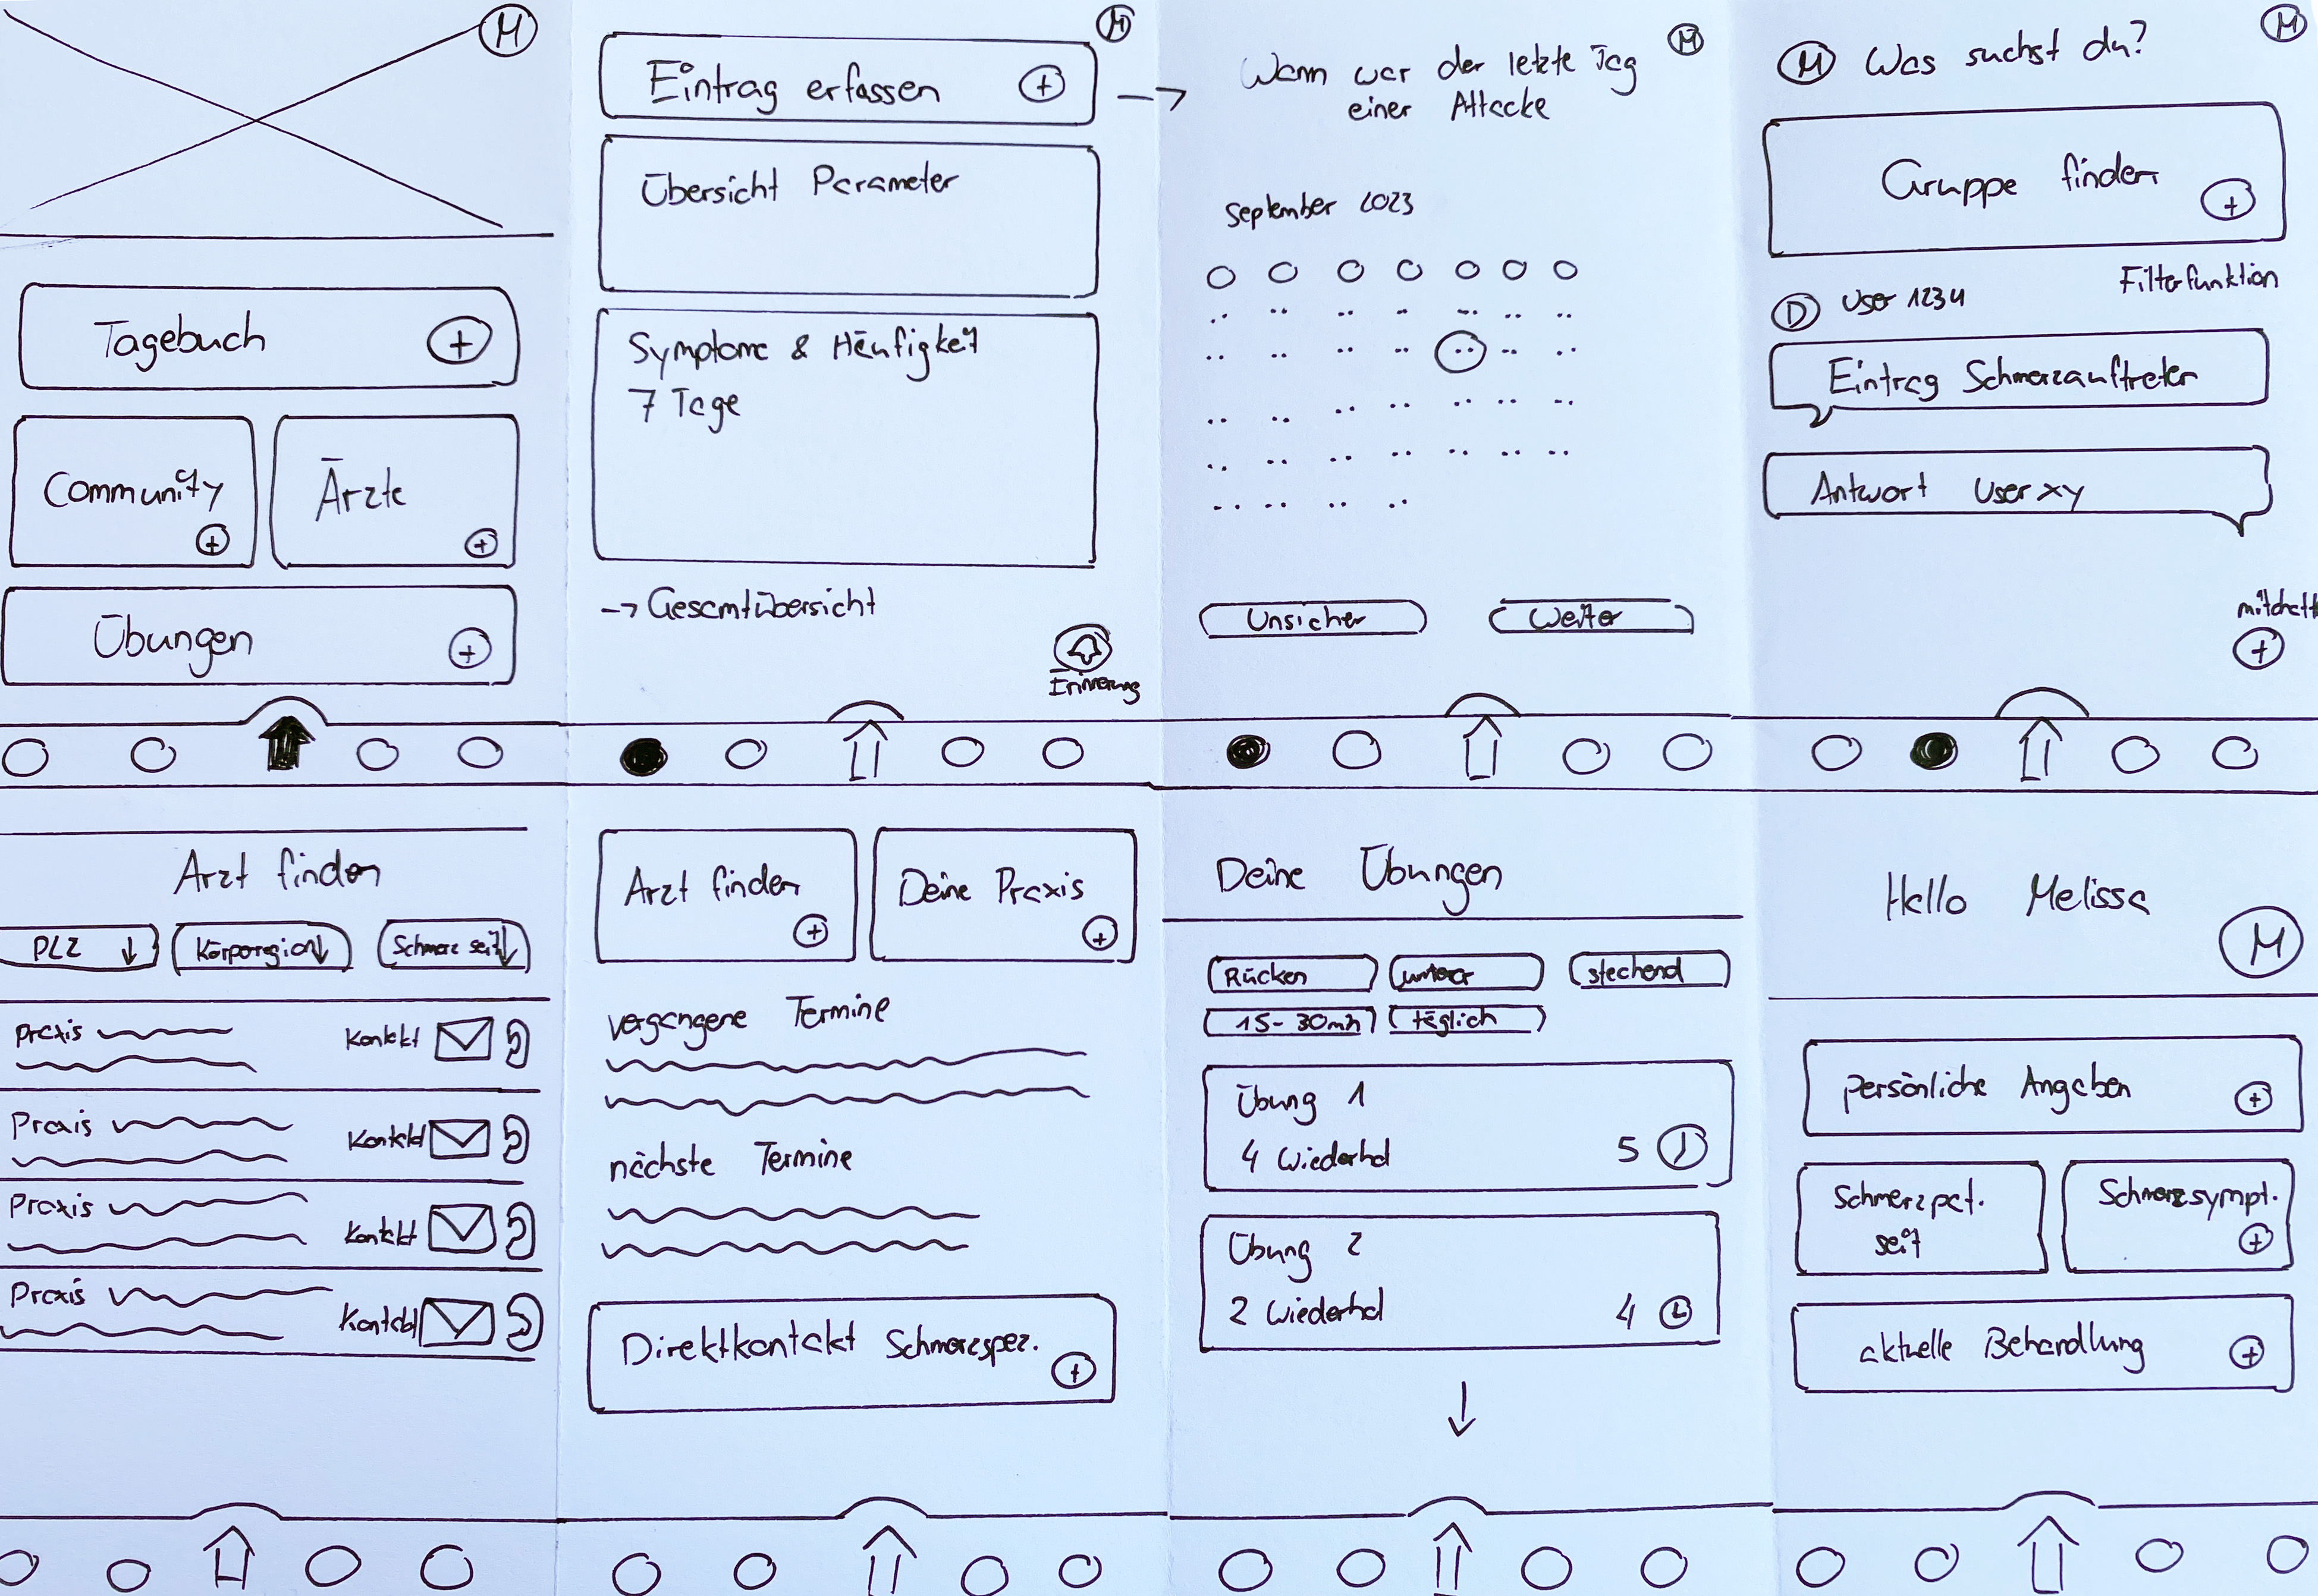 M
Tagebuch +
Community +
Ärzte +
Übungen +
M
Eintrag erfassen +
Übersicht Parameter
Symptome & Häufigkeit
7 Tage
→ Gesamtübersicht
Erinnerung
M
Wann war der letzte Tag
einer Attacke
September 2023
Unsicher
Weiter
M
M Was suchst du?
Gruppe finden +
Filterfunktion
D User 1234
Eintrag Schmerzauftreten
Antwort User xy
+
Arzt finden
PLZ ↓
Körperregion ↓
Schmerz seit ↓
Praxis
Kontakt
Praxis
Kontakt
Praxis
Kontakt
Praxis
Kontakt
Arzt finden +
Deine Praxis +
vergangene Termine
nächste Termine
Direktkontakt Schmerzspez. +
Deine Übungen
Rücken
unterer
stechend
15-30min
täglich
Übung 1
4 Wiederhol 5
Übung 2
2 Wiederhol 4
↓
Hallo Melissa
M
persönliche Angaben +
Schmerzpat.
seit
Schmerzsympt.
+
aktuelle Behandlung +